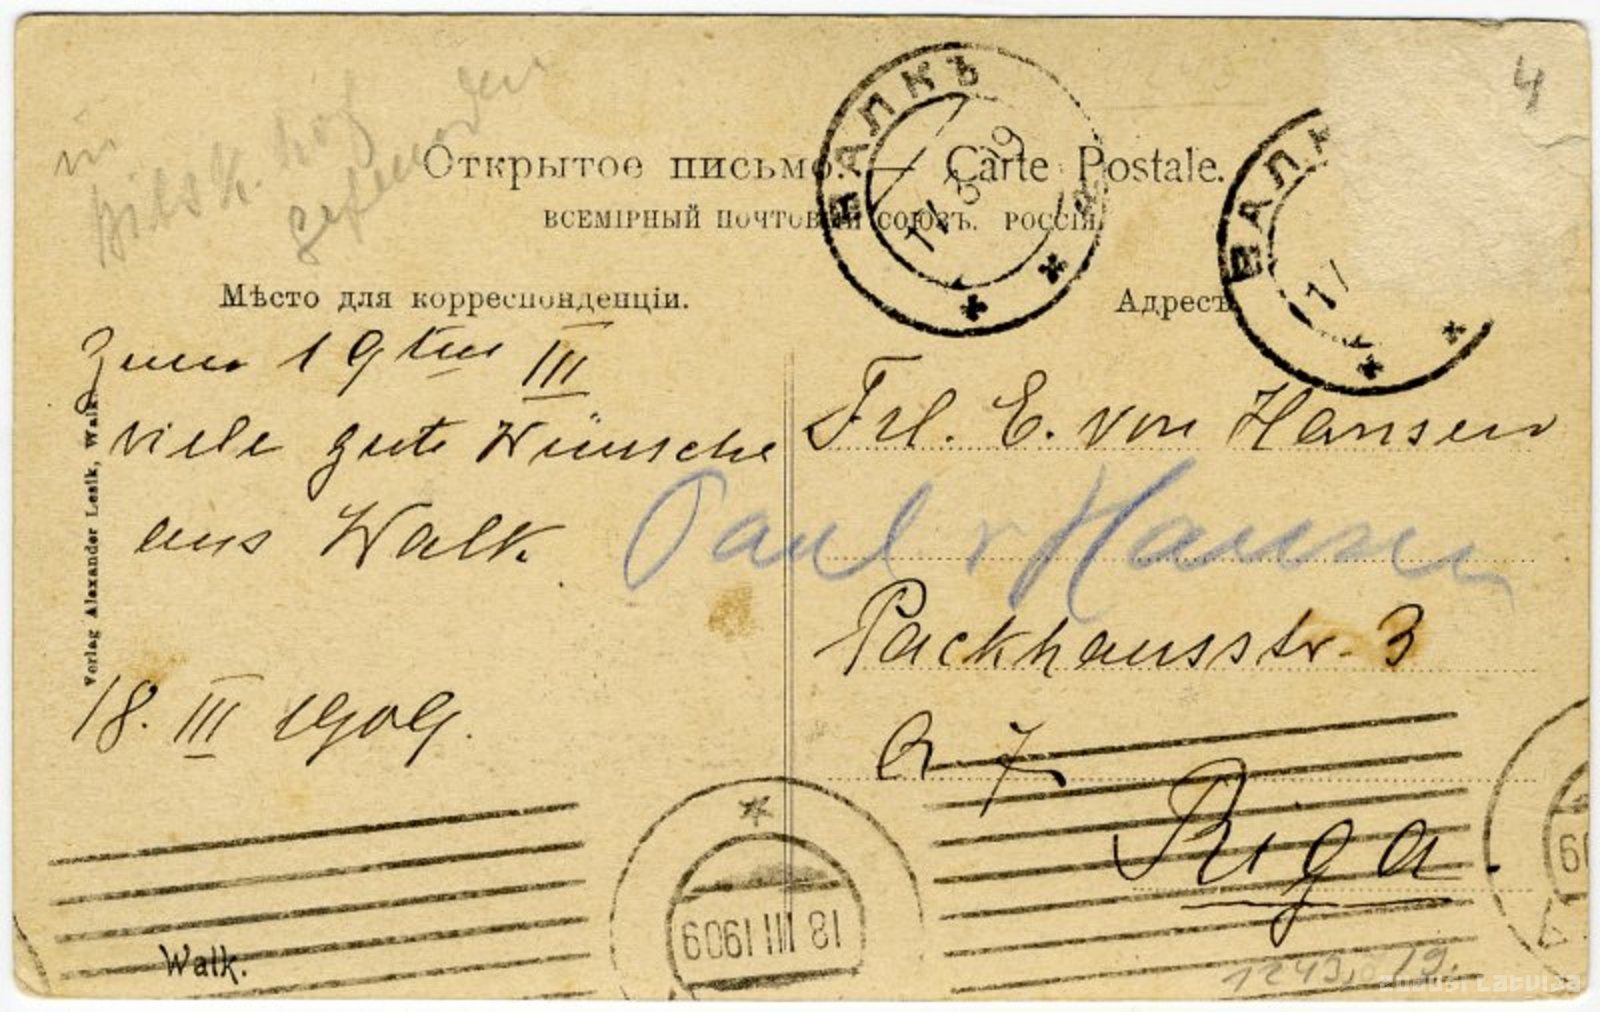 4
in
Bilsk. hof
gefunden
Открытое письмо. — Carte Postale.
ВСЕМІРНЫЙ ПОЧТОВЫЙ СОЮЗЪ. РОССІЯ.
ВАЛКЪ
17 3 09
ВАЛК
17
Мѣсто для корреспонденціи.
Адресъ
Zum 19ten III
viele gute Wünsche
aus Walk.
18. III 1909.
Frl. E. von Hansen
Paul v Hansen
Packhausstr. 3
Q 7
Riga.
Verlag Alexander Lesik, Walk.
18 III 1909
Walk.
zudusi latvija